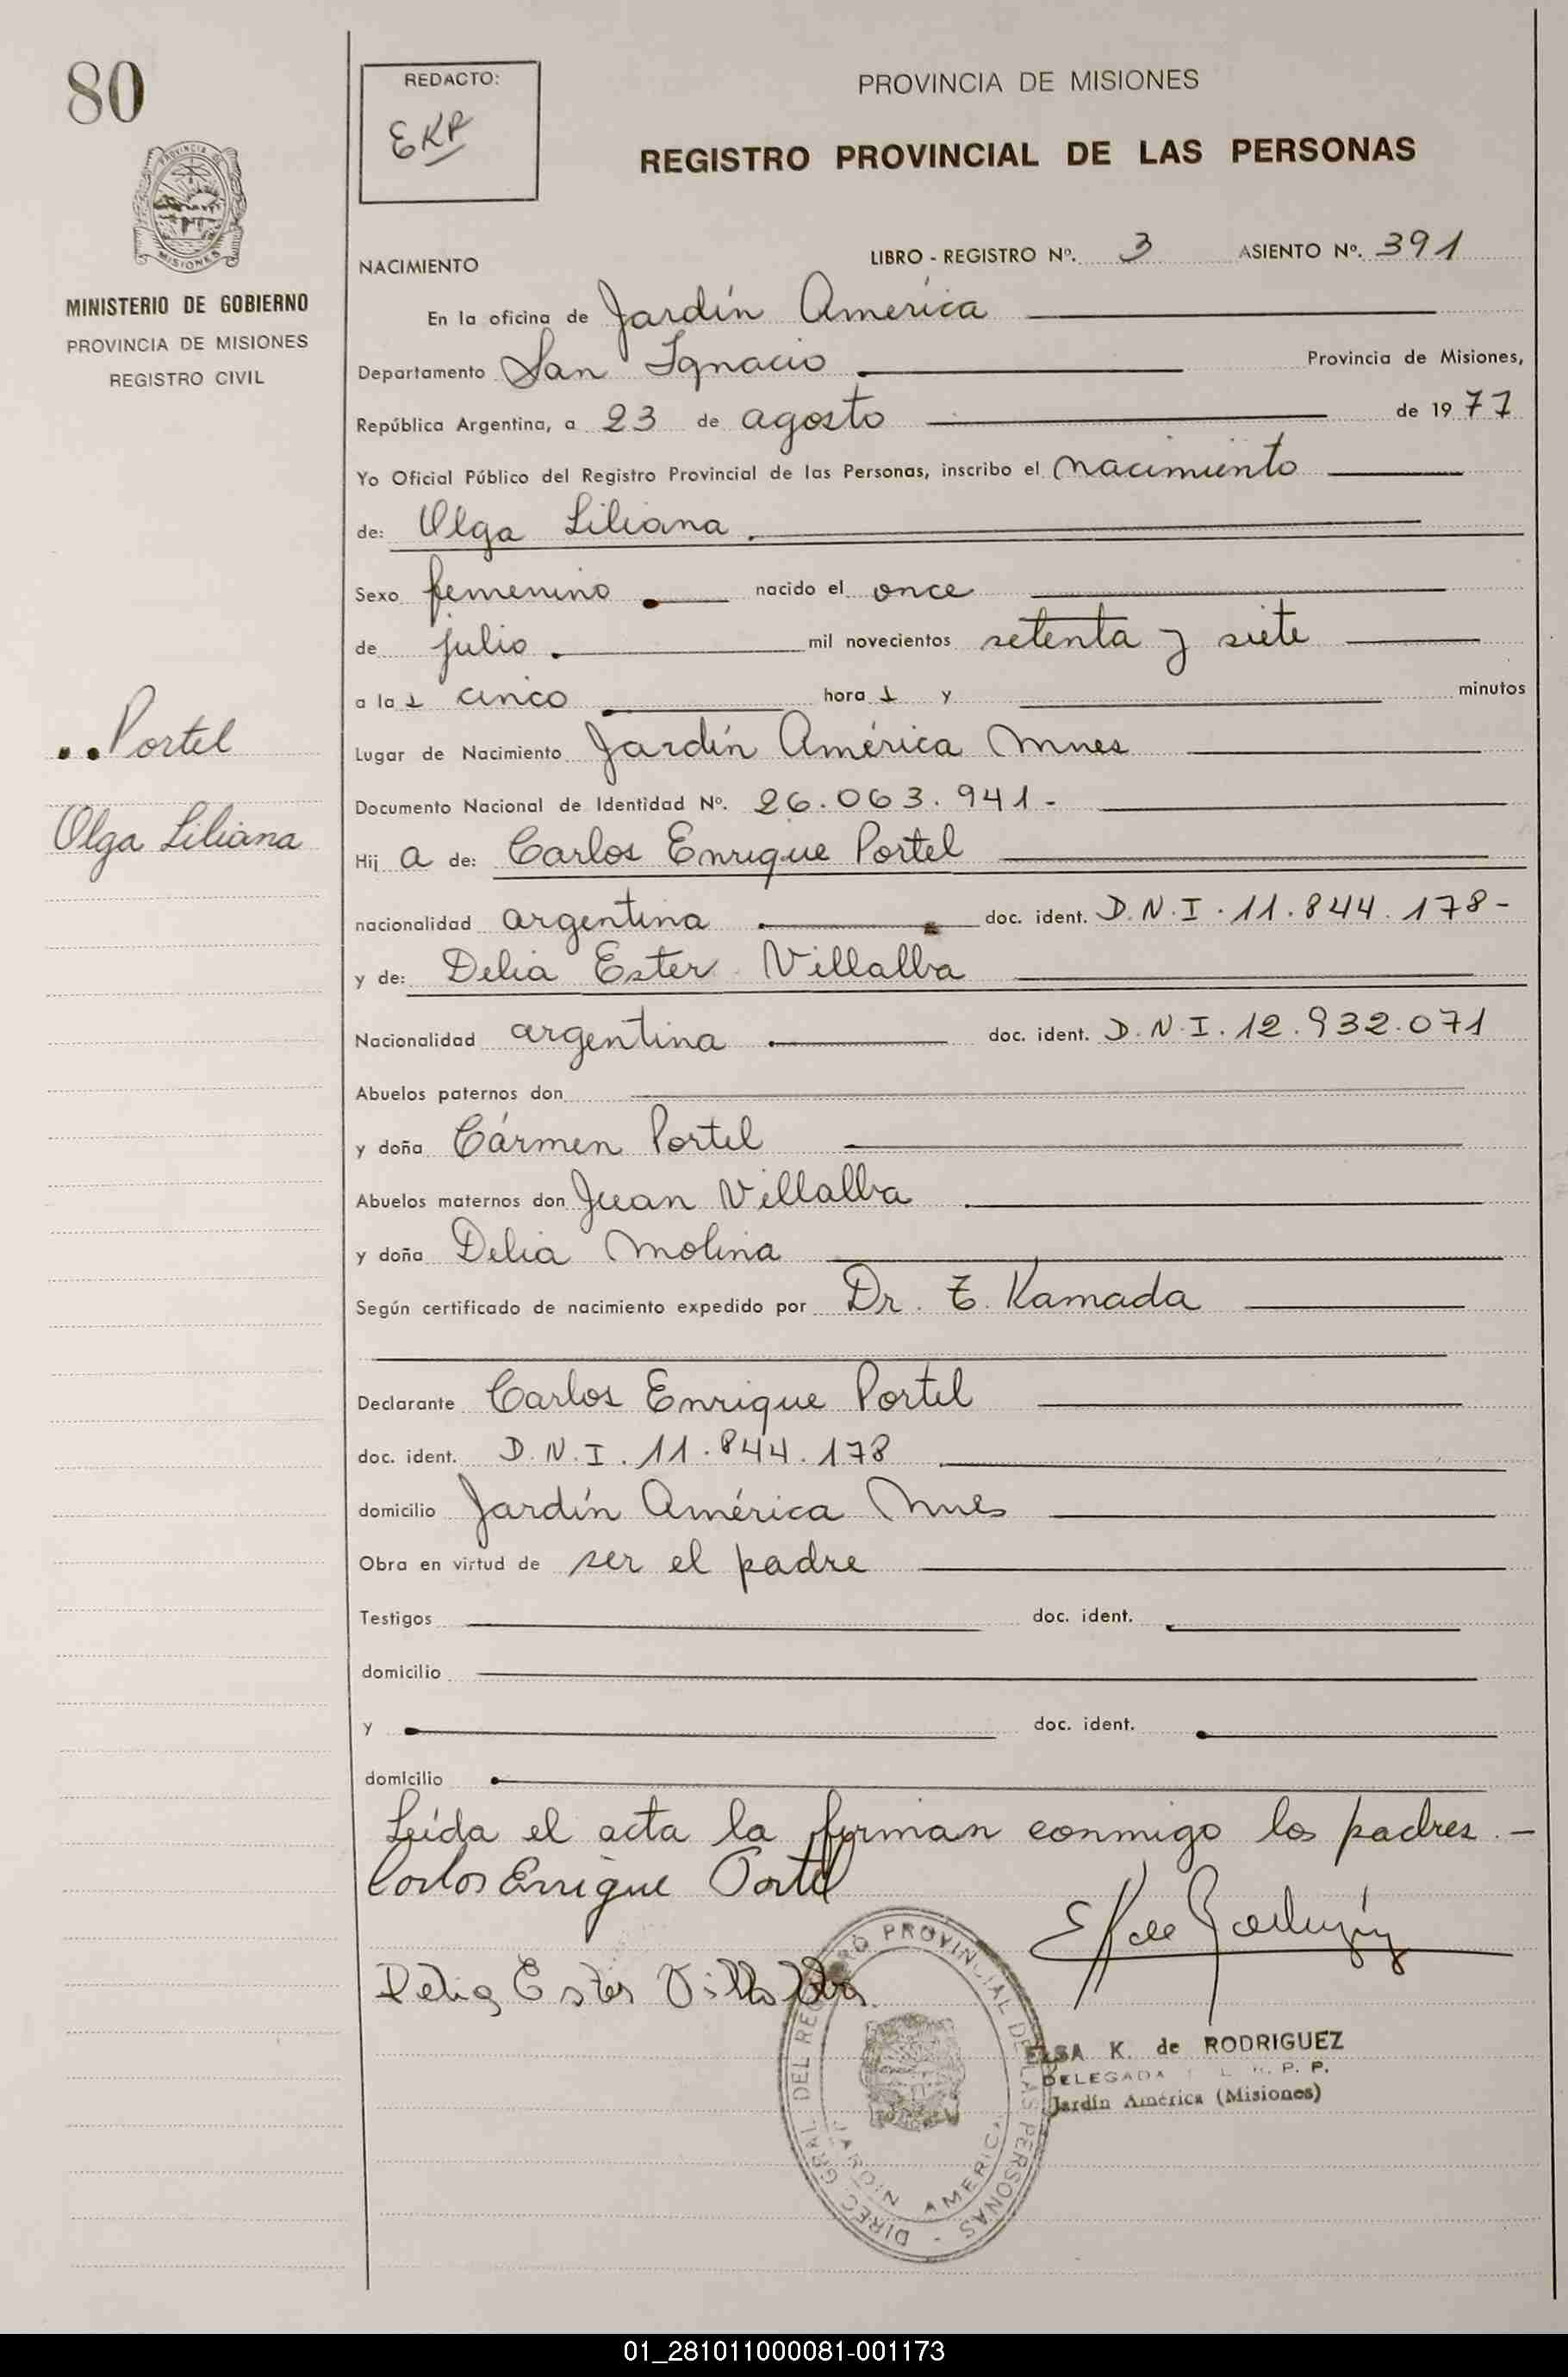 80
PROVINCIA DE MISIONES
MINISTERIO DE GOBIERNO
PROVINCIA DE MISIONES
REGISTRO CIVIL
Portel
Olga Liliana
REDACTO:
EKR
PROVINCIA DE MISIONES
REGISTRO PROVINCIAL DE LAS PERSONAS
NACIMIENTO LIBRO - REGISTRO Nº. 3 ASIENTO Nº. 391
En la oficina de Jardín América
Departamento San Ignacio Provincia de Misiones,
República Argentina, a 23 de agosto de 1977
Yo Oficial Público del Registro Provincial de las Personas, inscribo el nacimiento
de: Olga Liliana
Sexo femenino nacido el once
de julio mil novecientos setenta y siete
a las cinco horas y minutos
Lugar de Nacimiento Jardín América Mnes
Documento Nacional de Identidad Nº. 26.063.941-
Hij a de: Carlos Enrique Portel
nacionalidad argentina doc. ident. D.N.I. 11.844.178-
y de: Delia Ester Villalba
Nacionalidad argentina doc. ident. D.N.I. 12.932.071
Abuelos paternos don
y doña Cármen Portel
Abuelos maternos don Juan Villalba
y doña Delia Molina
Según certificado de nacimiento expedido por Dr. T. Kamada
Declarante Carlos Enrique Portel
doc. ident. D.N.I. 11.844.178
domicilio Jardín América Mnes
Obra en virtud de ser el padre
Testigos doc. ident.
domicilio
y doc. ident.
domicilio
Leída el acta la firman conmigo los padres.-
Carlos Enrique Portel
E K de Rodriguez
Delia Ester Villalba
DIREC. GRAL. DEL REGISTRO PROVINCIAL DE LAS PERSONAS -
JARDIN AMERICA
ELSA K. de RODRIGUEZ
DELEGADA R. P. P.
Jardín América (Misiones)
01_281011000081-001173